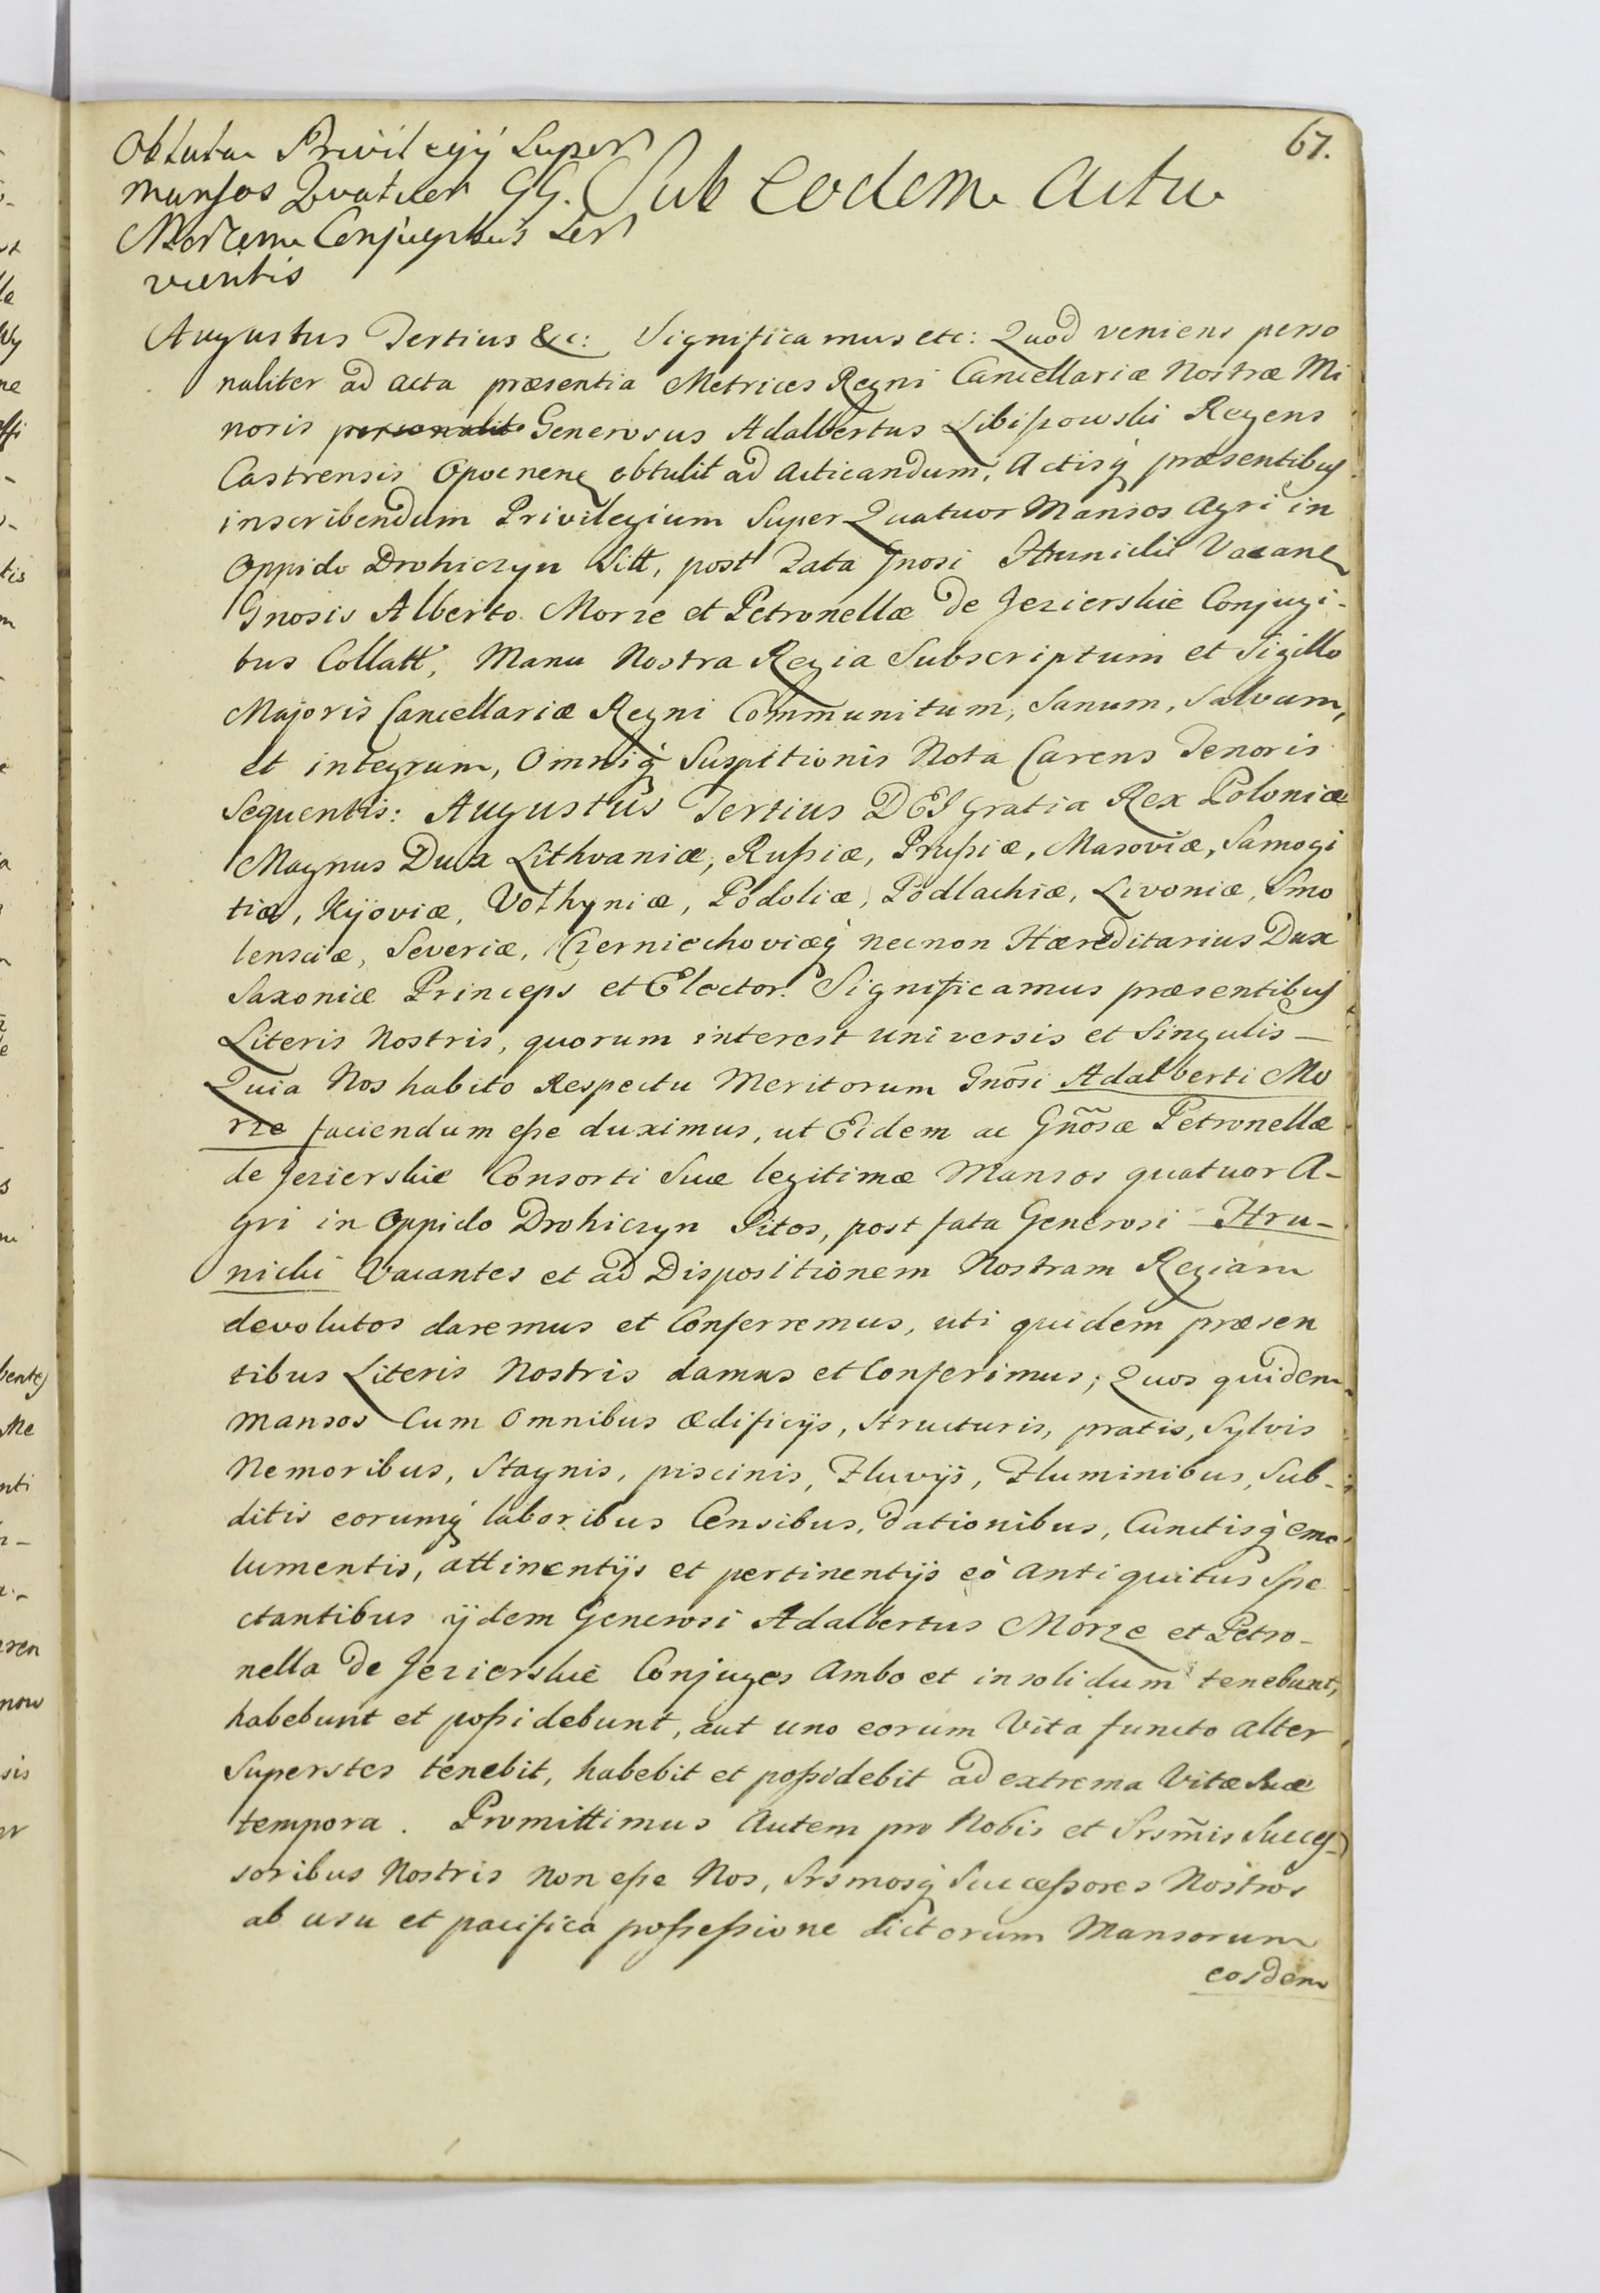 67.
Oblata Privilegij Super
mansos Quatuor GG.
Morzem Conjugibus Ser
vientis
Sub Eodem Actu
Augustus Tertius &c: Significamus etc: Quod veniens perso
naliter ad acta præsentia Metrices Regni Cancellariæ Nostræ Mi
noris personalit Generosus Adalbertus Libiszowski Regens
Castrensis Opocnen obtulit ad acticandum, Actisq præsentibus
inscribendum Privilegium Super Quatuor Mansos Agri in
Oppido Drohiczyn Sitt, post Fata Gnosi Hrunicki Vacan
Gnosis Alberto Morze et Petronellæ de Jezierskie Conjugi-
bus Collatt, Manu Nostra Regia Subscriptum et Sigillo
Majoris Cancellariæ Regni Communitum, Sanum, Salvum,
et integrum, Omniq Suspitionis Nota Carens Tenoris
Sequentis: Augustus Tertius DEI Gratia Rex Poloniæ
Magnus Dux Lithvaniæ, Rußiæ, Prußiæ, Masoviæ, Samogi
tiæ, Kijoviæ, Volhyniæ, Podoliæ, Podlachiæ, Livoniæ, Smo
lensciæ, Severiæ, Czerniechoviæq necnon Hæreditarius Dux
Saxoniæ Princeps et Elector. Significamus præsentibus
Literis Nostris, quorum interest universis et Singulis –
Quia Nos habito Respectu Meritorum Gnosi Adalberti Mo
rze faciendum eße duximus, ut Eidem ac Gnosæ Petronellæ
de Jezierskie Consorti Suæ legitimæ Mansos quatuor A-
gri in Oppido Drohiczyn Sitos, post fata Generosi Hru-
nicki Vacantes et ad Dispositionem Nostram Regiam
devolutos daremus et Conferremus, uti quidem præsen
tibus Literis Nostris damus et Conferimus; Quos quidem
Mansos Cum Omnibus ædificijs, structuris, pratis, Sylvis
Nemoribus, Stagnis, piscinis, Fluvijs, Fluminibus, Sub-
ditis eorumq laboribus Censibus, dationibus, Cunctisq emo
lumentis, attinentijs et pertinentijs eò Antiquitus Spe
ctantibus ijdem Generosi Adalbertus Morze et Petro-
nella de Jezierskie Conjuges Ambo et insolidum tenebunt,
habebunt et poßidebunt, aut uno eorum Vita functo alter
Superstes tenebit, habebit et poßidebit ad extrema Vitæ Suæ
tempora. Promittimus Autem pro Nobis et Srsmis Succes-
soribus Nostris Non eße Nos, Srsmosq Succeßores Nostros
ab usu et pacifica poßeßione dictorum Mansorum
eosdem